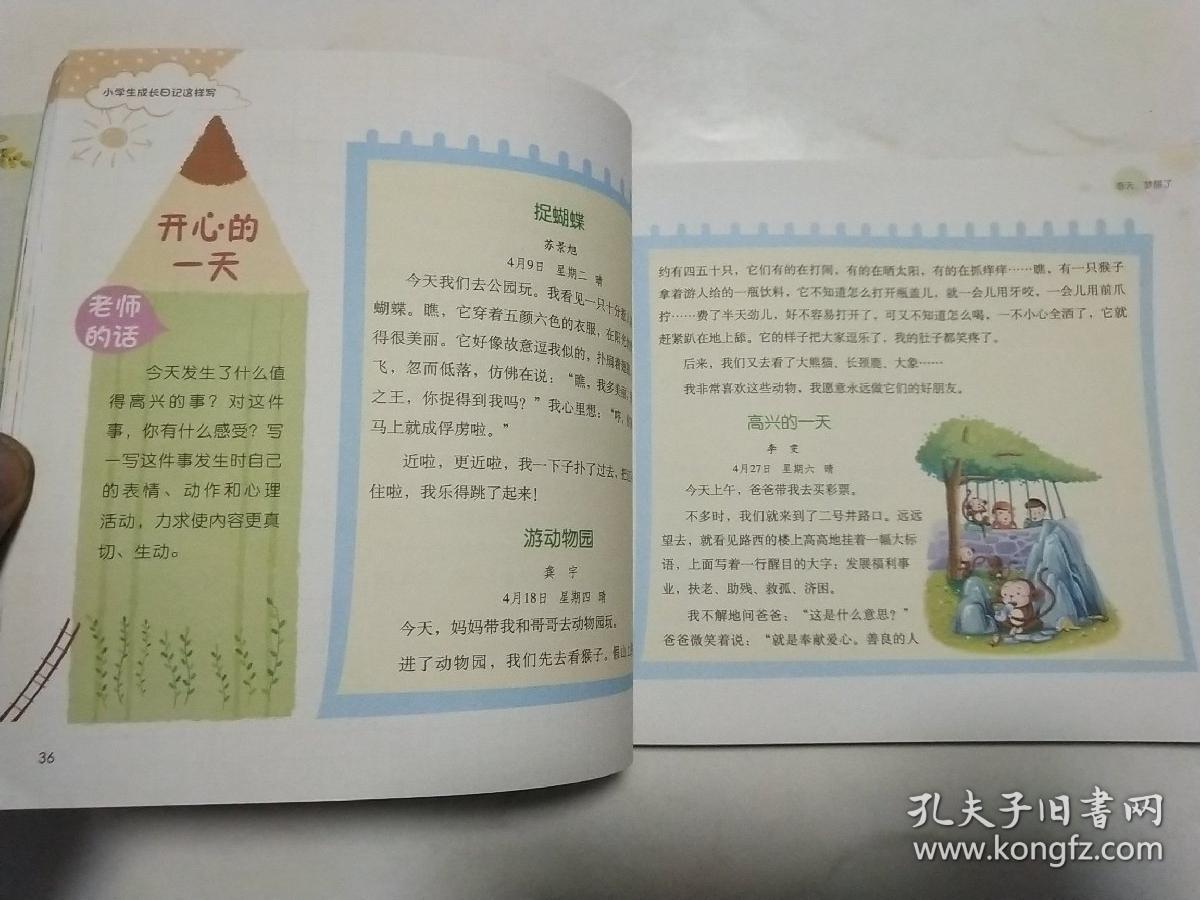 小学生成长日记这样写
开心的
一天
老师
的话
今天发生了什么值
得高兴的事？对这件
事，你有什么感受？写
一写这件事发生时自己
的表情、动作和心理
活动，力求使内容更真
切、生动。
36
捉蝴蝶
苏景旭
4月9日 星期二 晴
今天我们去公园玩。我看见一只十分
蝴蝶。瞧，它穿着五颜六色的衣服，在阳光
得很美丽。它好像故意逗我似的，扑扇着翅膀
飞，忽而低落，仿佛在说：“瞧，我多美丽
之王，你捉得到我吗？”我心里想：“哼，
马上就成俘虏啦。”
近啦，更近啦，我一下子扑了过去，把
住啦，我乐得跳了起来！
游动物园
龚宇
4月18日 星期四 晴
今天，妈妈带我和哥哥去动物园玩。
进了动物园，我们先去看猴子。假山上
春天，梦醒了
约有四五十只，它们有的在打闹，有的在晒太阳，有的在抓痒痒……瞧，有一只猴子
拿着游人给的一瓶饮料，它不知道怎么打开瓶盖儿，就一会儿用牙咬，一会儿用前爪
拧……费了半天劲儿，好不容易打开了，可又不知道怎么喝，一不小心全洒了，它就
赶紧趴在地上舔。它的样子把大家逗乐了，我的肚子都笑疼了。
后来，我们又去看了大熊猫、长颈鹿、大象……
我非常喜欢这些动物，我愿意永远做它们的好朋友。
高兴的一天
李雯
4月27日 星期六 晴
今天上午，爸爸带我去买彩票。
不多时，我们就来到了二号井路口。远远
望去，就看见路西的楼上高高地挂着一幅大标
语，上面写着一行醒目的大字：发展福利事
业，扶老、助残、救孤、济困。
我不解地问爸爸：“这是什么意思？”
爸爸微笑着说：“就是奉献爱心。善良的人
孔夫子旧书网
www.kongfz.com